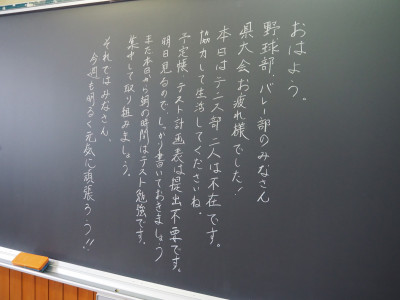 おはよう。
野球部、バレー部のみなさん
県大会お疲れ様でした！
本日はテニス部二人は不在です。
協力して生活してくださいね。
予定帳、テスト計画表は提出不要です。
明日見るので、しっかり書いておきましょう
また本日から朝の時間はテスト勉強です。
集中して取り組みましょう。
それではみなさん、
今週も明るく元気に頑張ろう!!